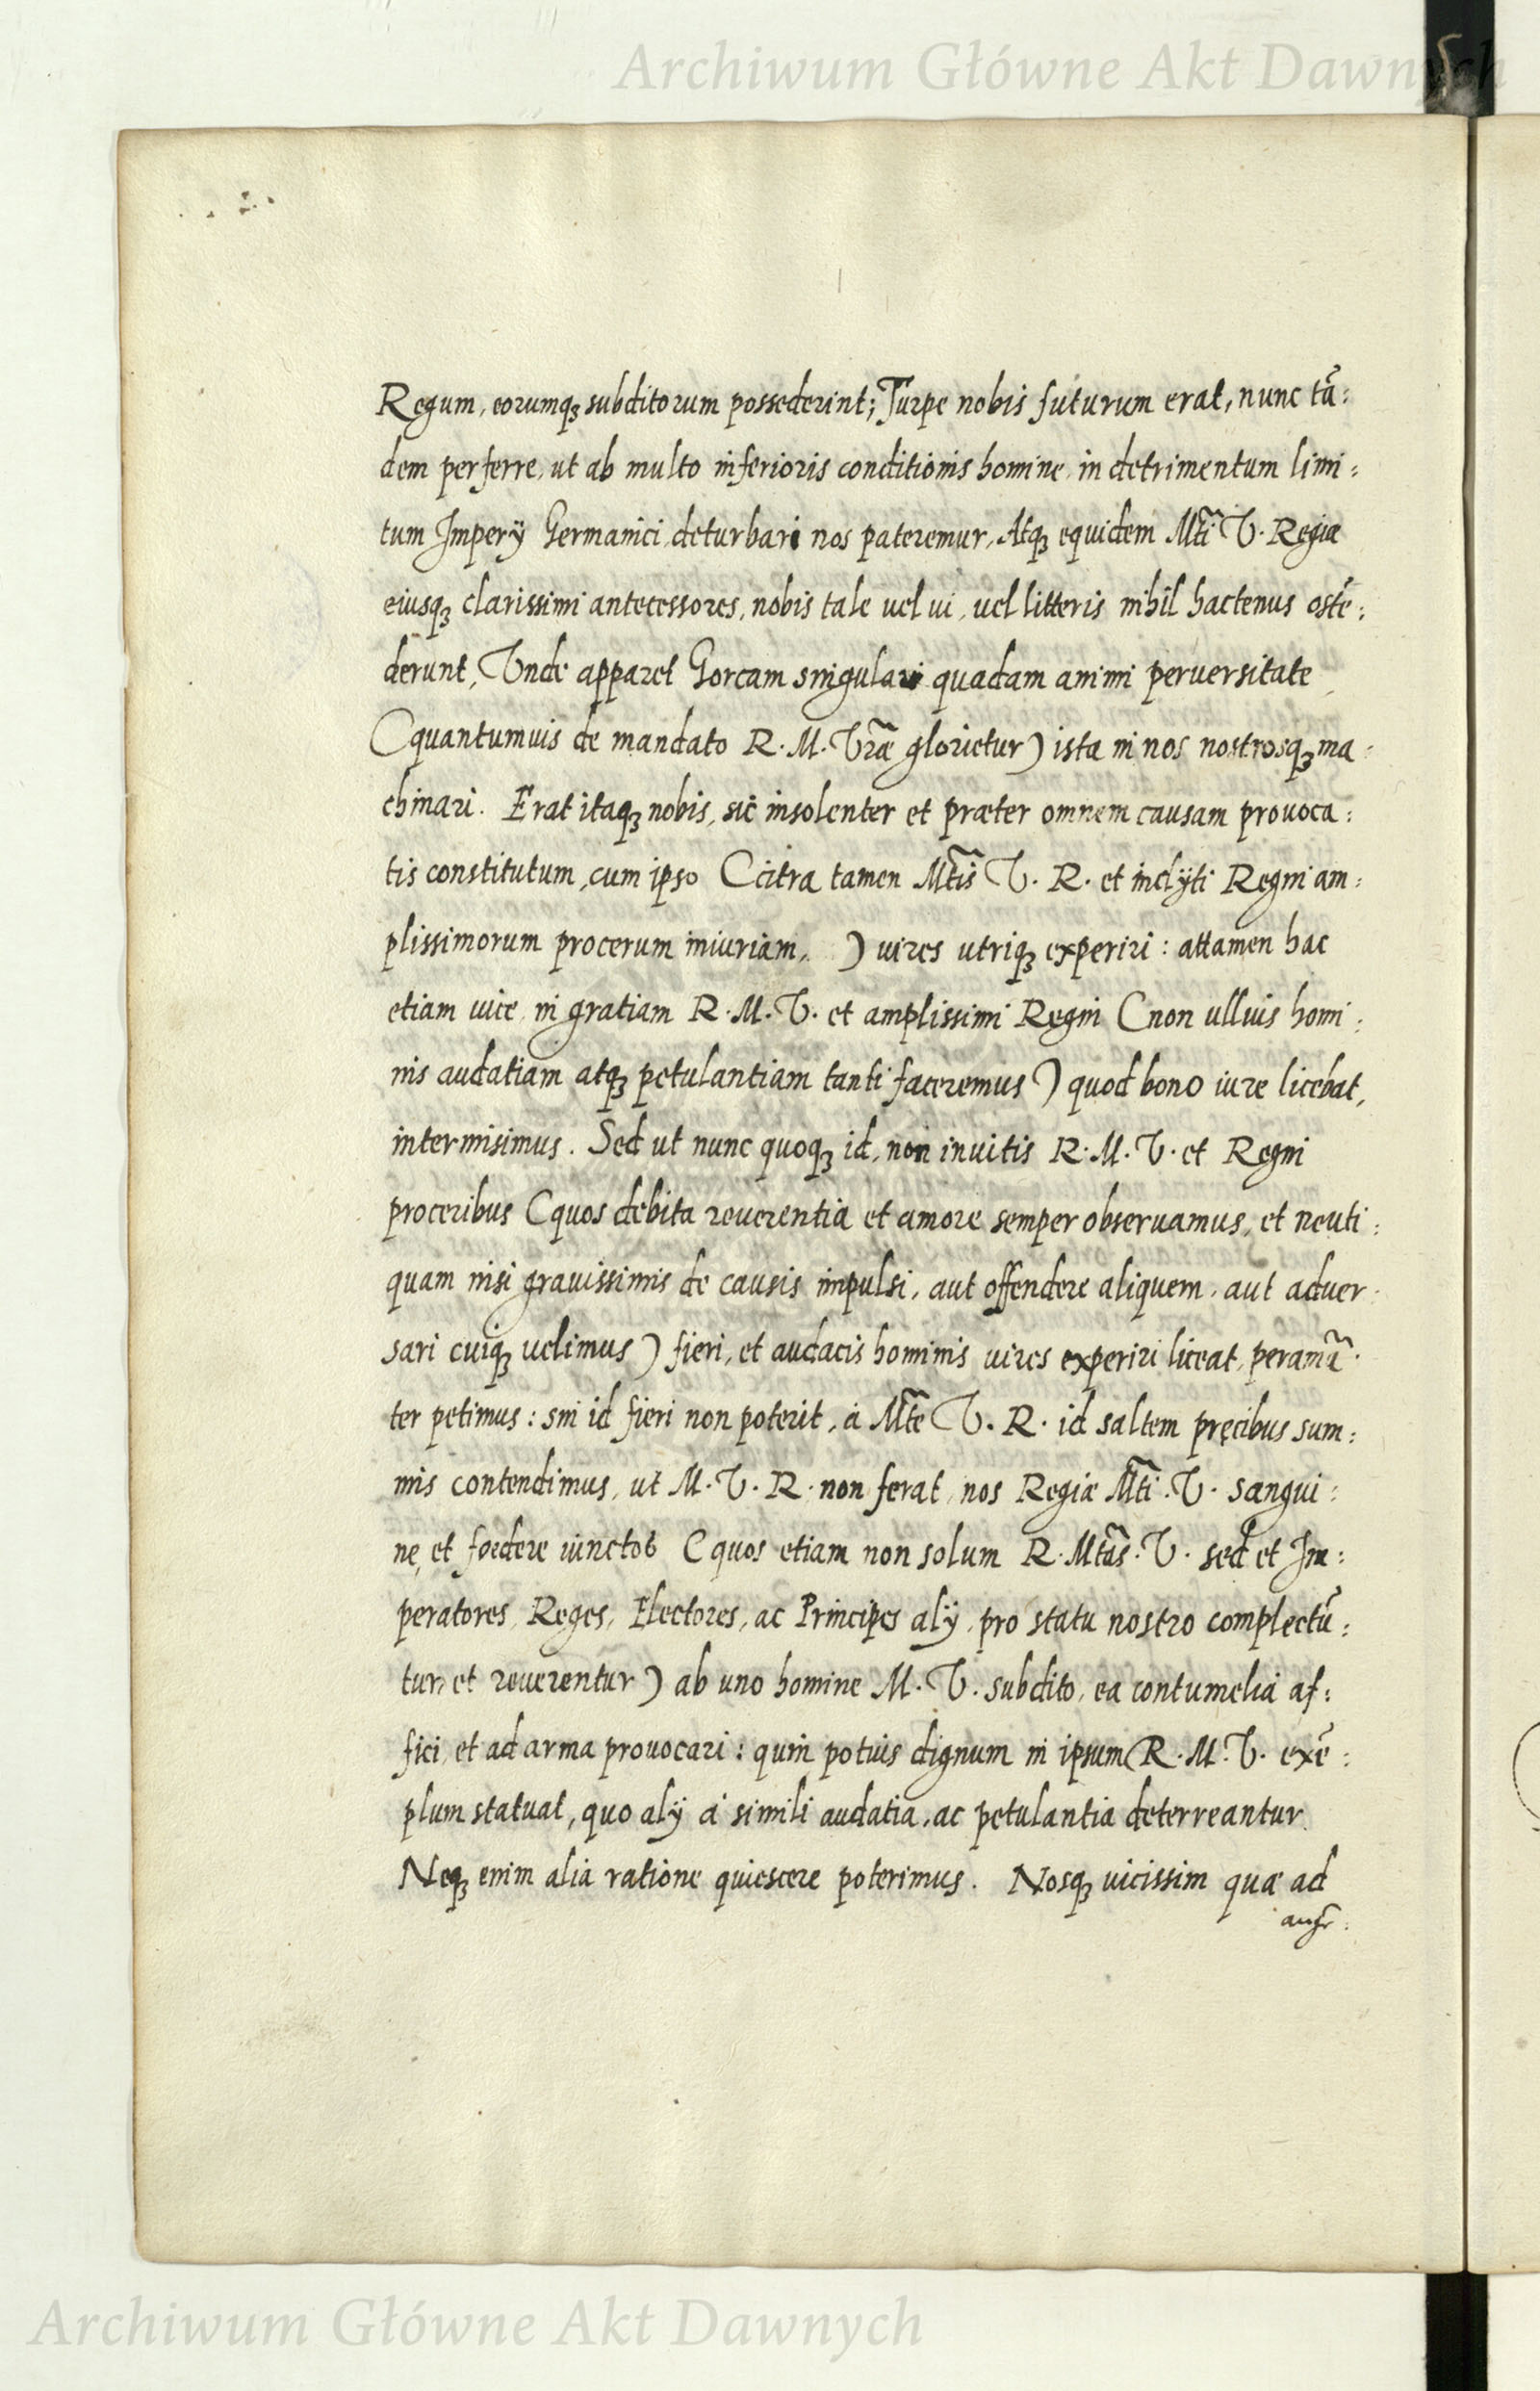 Archiwum Główne Akt Dawnych
Regum, eorumqꝫ subditorum possederint; Turpe nobis futurum erat, nunc tā:
dem perferre, ut ab multo inferioris conditionis homine, in detrimentum limi:
tum Imperÿ Germanici, deturbari nos pateremur, Atqꝫ equidem Mti̅ V. Regiæ
eiusqꝫ clarissimi antecessores, nobis tale uel ui, uel litteris nihil hactenus ostē:
derunt, Vnde apparet Gorcam singulari quadam animi peruersitate
(quantumuis de mandato R. M. Vr̅æ glorietur) ista in nos nostrosqꝫ ma:
chinari. Erat itaqꝫ nobis, sic insolenter et præter omnem causam prouoca:
tis constitutum, cum ipso (citra tamen Mtis̅ V. R. et inclÿti Regni am:
plissimorum procerum iniuriam,) uires utriqꝫ experiri: attamen hac
etiam uice, in gratiam R. M. V. et amplissimi Regni (non ulluis homi:
nis audatiam atqꝫ petulantiam tanti faceremus) quod bono iure licebat,
intermisimus. Sed ut nunc quoqꝫ id, non inuitis R. M. V. et Regni
proceribus (quos debita reuerentia et amore semper obseruamus, et neuti:
quam nisi grauissimis de causis impulsi, aut offendere aliquem, aut aduer:
sari cuiqꝫ uelimus) fieri, et audacis hominis uires experiri liceat, peramā:
ter petimus: sin id fieri non poterit, à Mte̅ V. R. id saltem pręcibus sum:
mis contendimus, ut M. V. R. non ferat, nos Regiæ Mti̅. V. sangui:
nę et foedere iunctos (quos etiam non solum R. Mtas̅. V. sed et Im:
peratores, Reges, Electores, ac Principes alÿ, pro statu nostro complectū:
tur, et reuerentur) ab uno homine M. V. subdito, ea contumelia af:
fici, et ad arma prouocari: quin potuis dignum in ipsum R. M. V. exē:
plum statuat, quo alÿ à simili audatia, ac petulantia deterreantur.
Neqꝫ enim alia ratione quiescere poterimus. Nosqꝫ uicissim quæ ad
Archiwum Główne Akt Dawnych